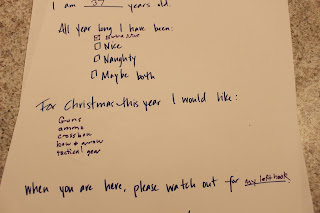 I am 37 years old.
All year long I have been:
Nice
Naughty
Maybe both
For Christmas this year I would like:
Guns
ammo
crossbow
bow & arrow
tactical gear
When you are here, please watch out for my left hook